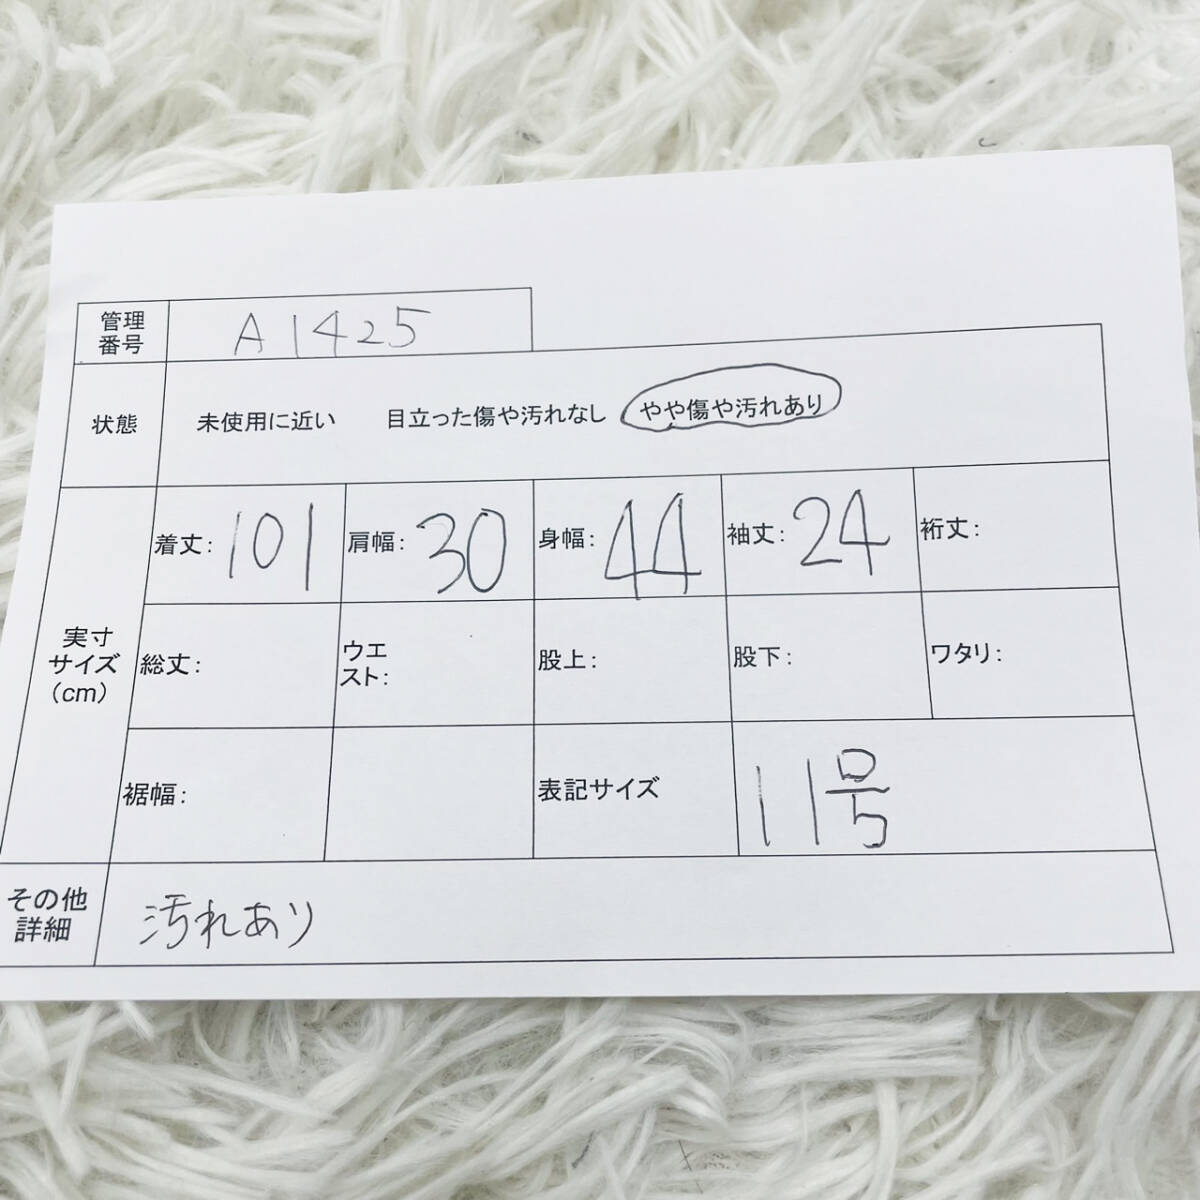 管理
番号
A1425
状態
未使用に近い 目立った傷や汚れなし やや傷や汚れあり
実寸
サイズ
(cm)
着丈: 101
肩幅: 30
身幅: 44
袖丈: 24
裄丈:
総丈:
ウエ
スト:
股上:
股下:
ワタリ:
裾幅:
表記サイズ
11号
その他
詳細
汚れあり